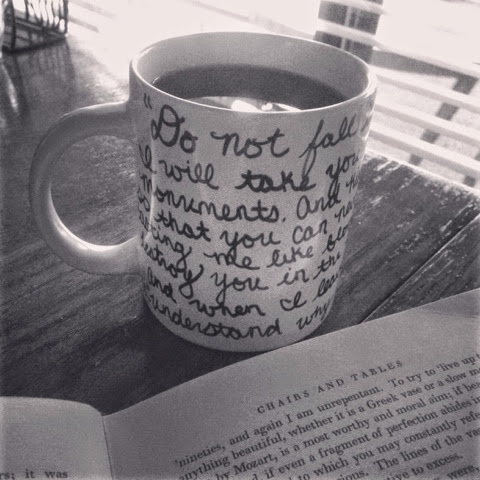 "Do not fall
I will take you
monuments. And
so that you can
me like
destroy you in the
And when I
understand why
CHAIRS AND TABLES
'nineties, and again I am unrepentant. To try to 'live up
anything beautiful, whether it is a Greek vase or a slow
by Mozart, is a most worthy and moral aim; if
if even a fragment of perfection abides
to which you may constantly
The lines of the
to excess.
were,
it was